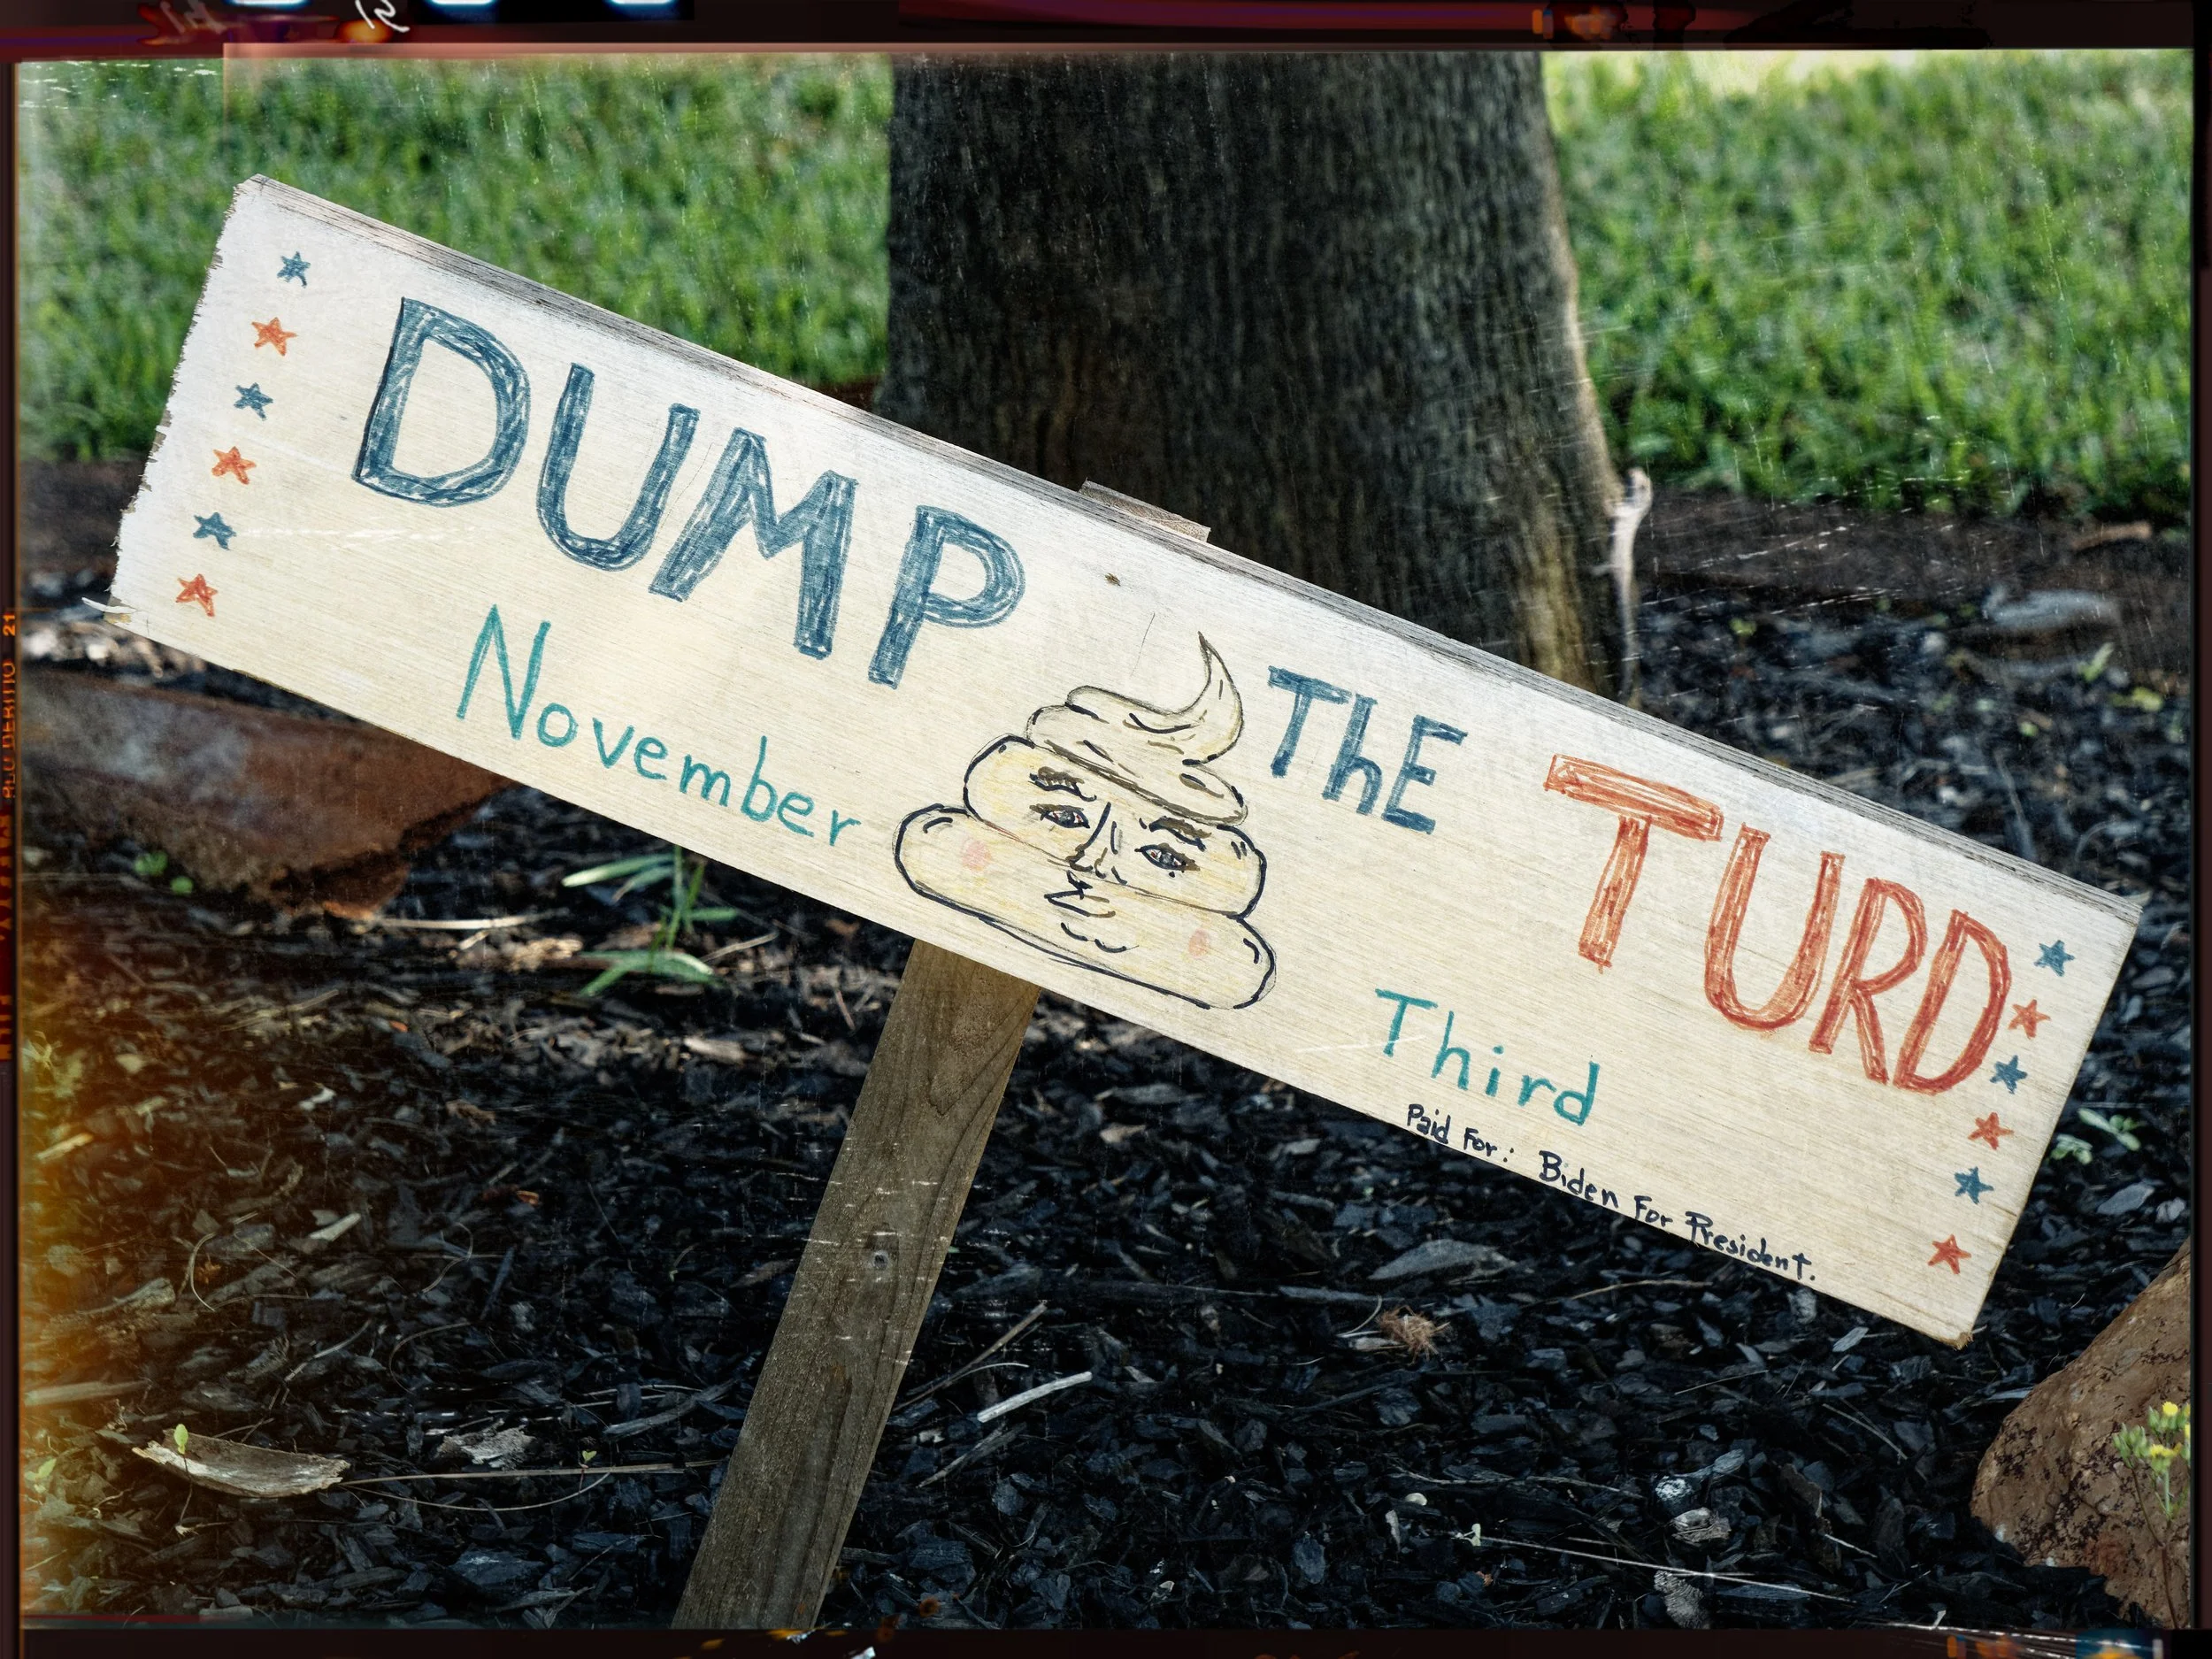 DUMP ThE TURD
November Third
Paid For: Biden For President.
21